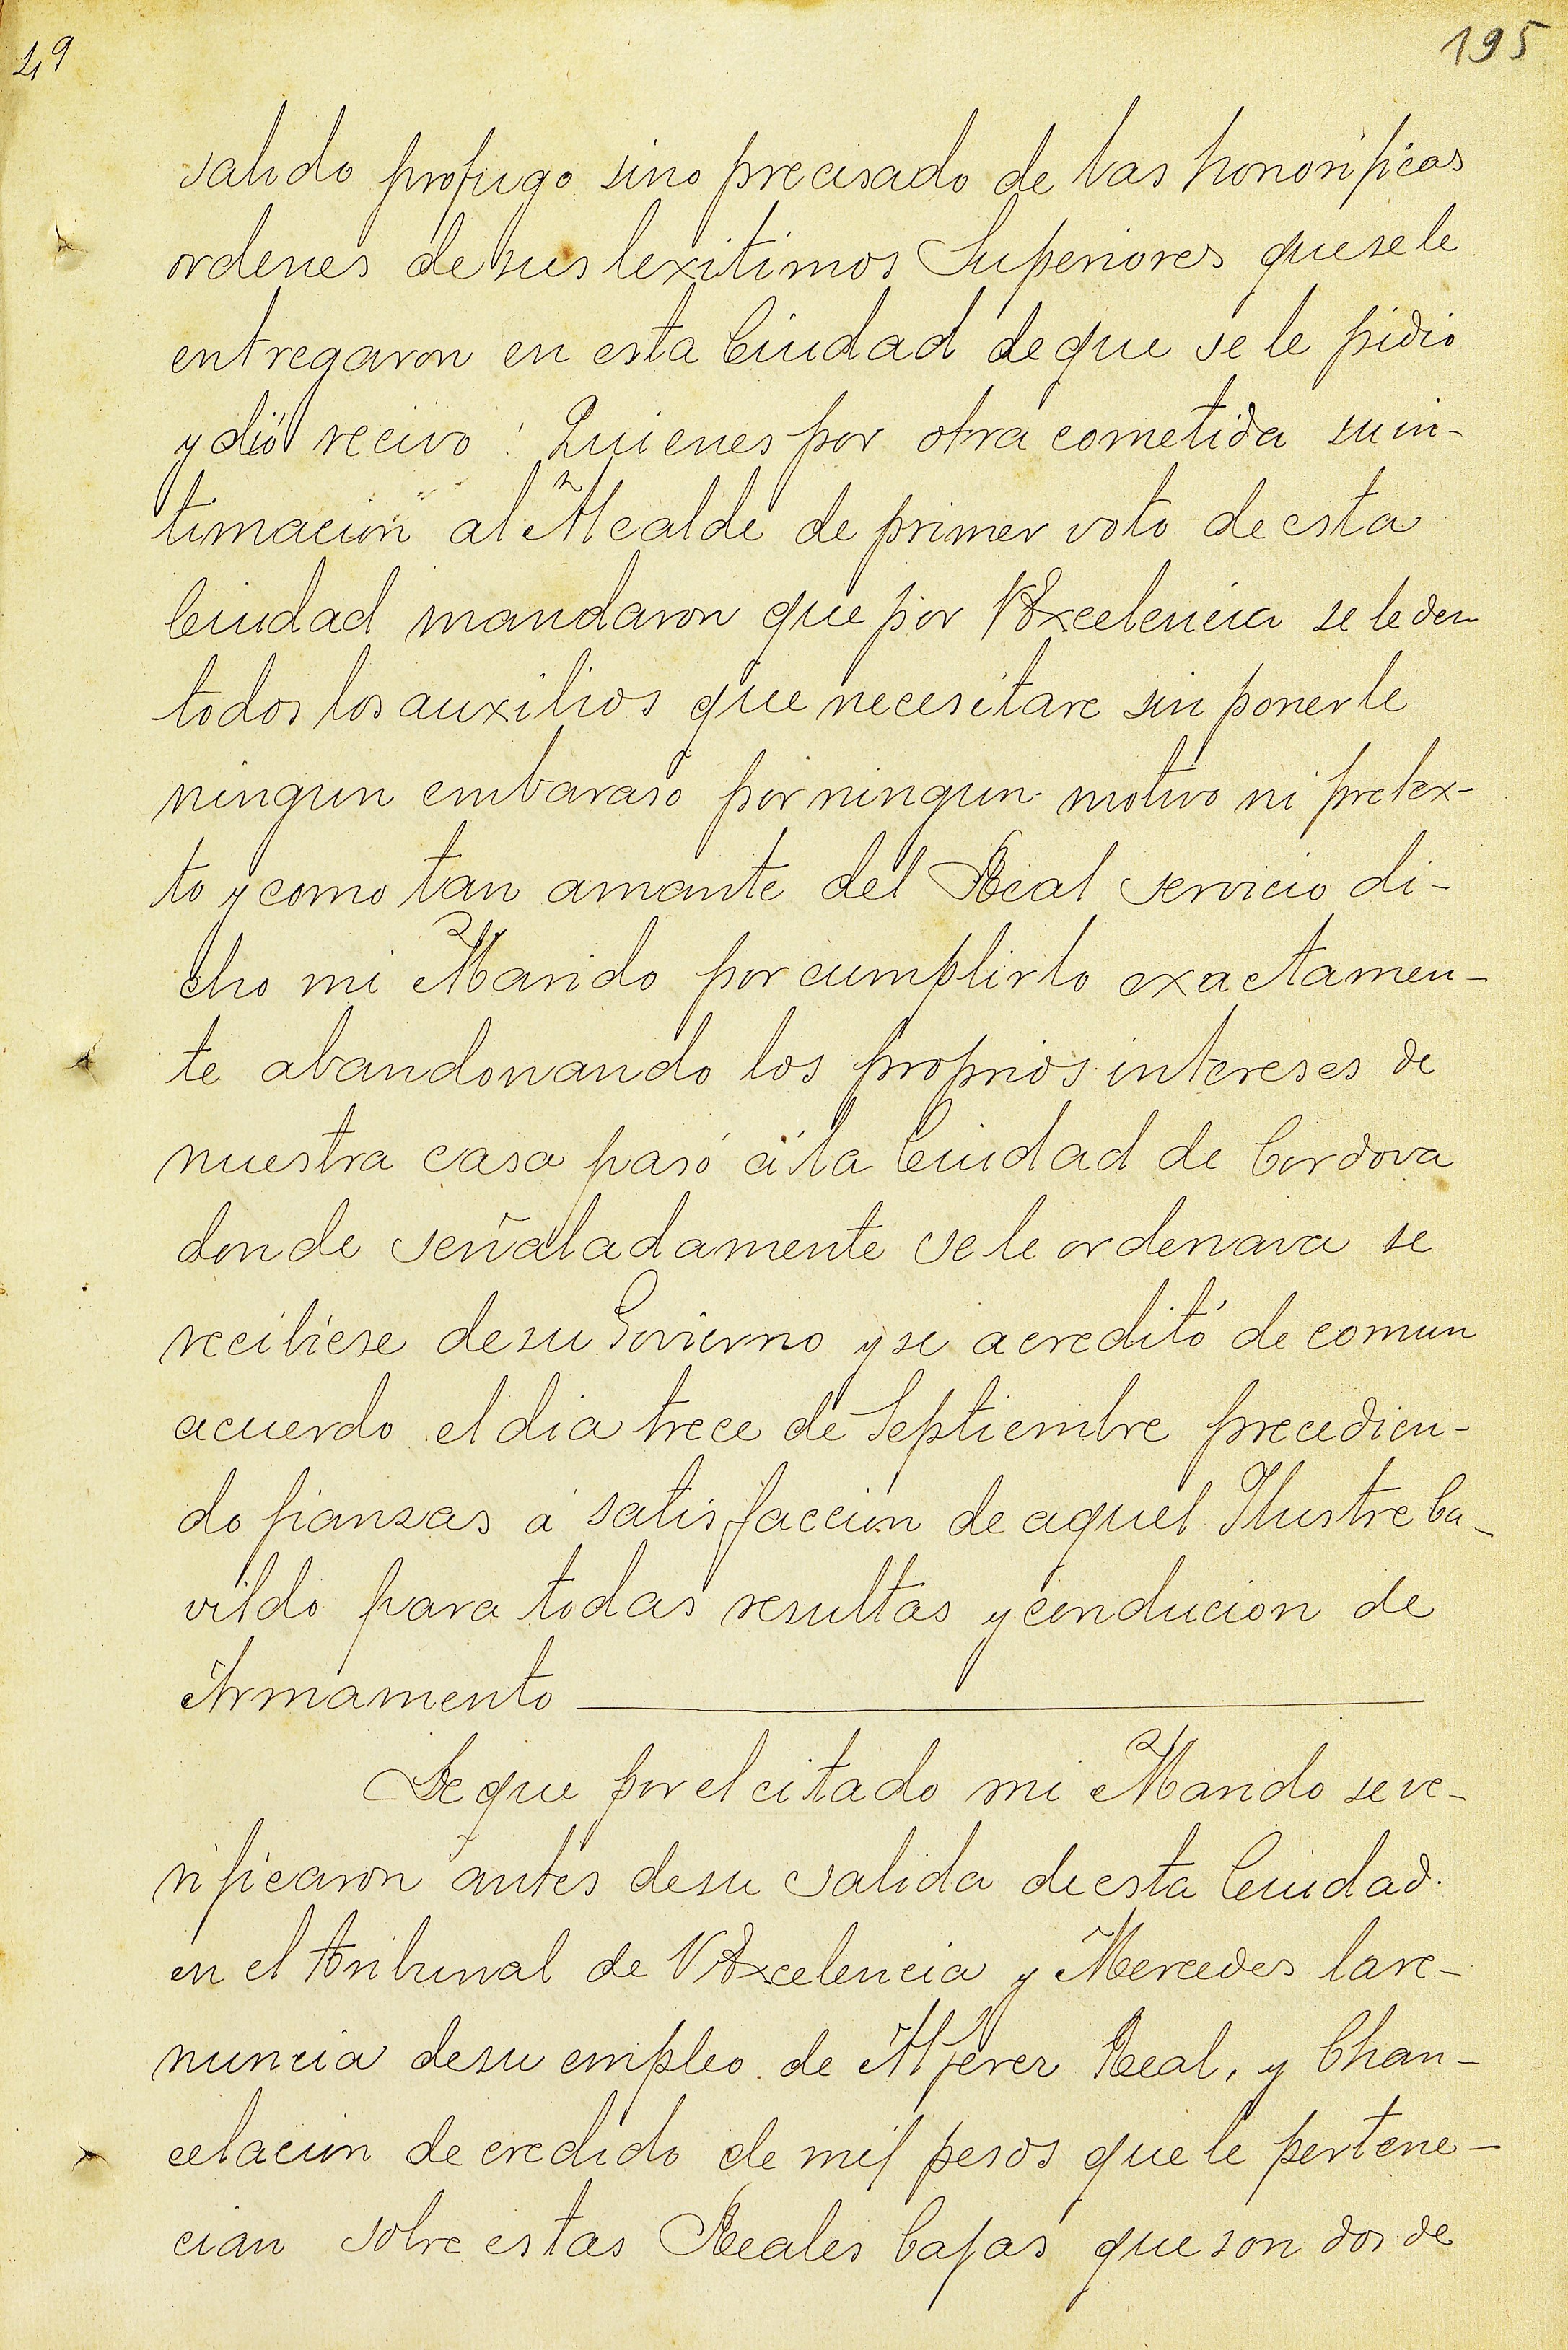 49
195
salido profugo sino precisado de las honorificas
ordenes de sus lexitimos Superiores que se le
entregaron en esta Ciudad de que se le pidio
y dió recivo: Quienes por otra cometida su in-
timacion al Alcalde de primer voto de esta
Ciudad mandaron que por VExcelencia se le den
todos los auxilios que necesitare sin ponerle
ningun embaraso por ningun motivo ni pretex-
to y como tan amante del Real servicio di-
cho mi Marido por cumplirlo exactamen-
te abandonando los proprios intereses de
nuestra casa pasó á la Ciudad de Cordova
donde señaladamente se le ordenava se
reciviese de su Govierno y se acreditó de comun
acuerdo el dia trece de Septiembre precedien-
do fianzas á satisfaccion de aquel Ilustre Ca-
vildo para todas resultas y conducion de
Armamento
De que por el citado mi Marido se ve-
rificaron antes de su salida de esta Ciudad.
en el tribunal de VExcelencia y Mercedes la re-
nuncia de su empleo de Alferez Real, y Chan-
celacion de credido de mil pesos que le pertene-
cian sobre estas Reales Cajas que son dos de